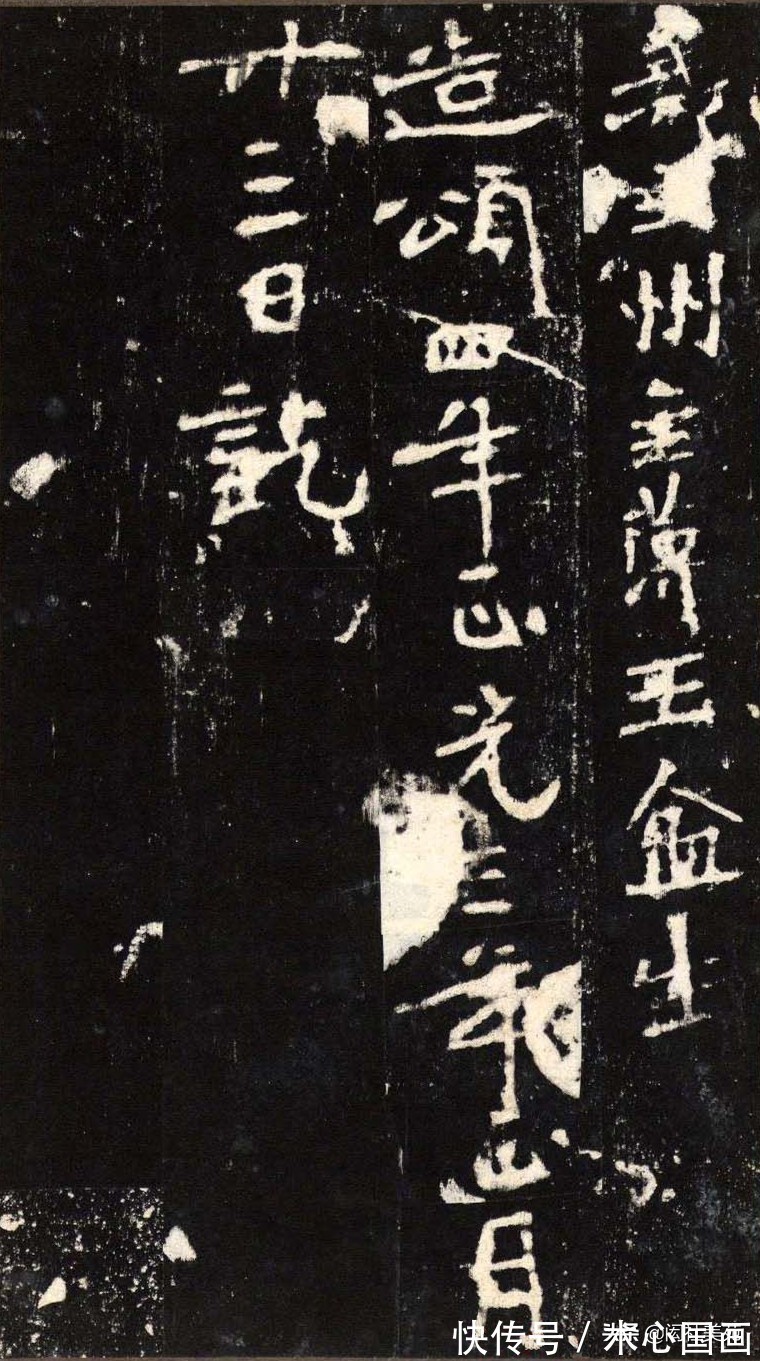 義州主簿王盆生
造頌四年正光三年正月
廿三日訖
快传号 / 米心国画